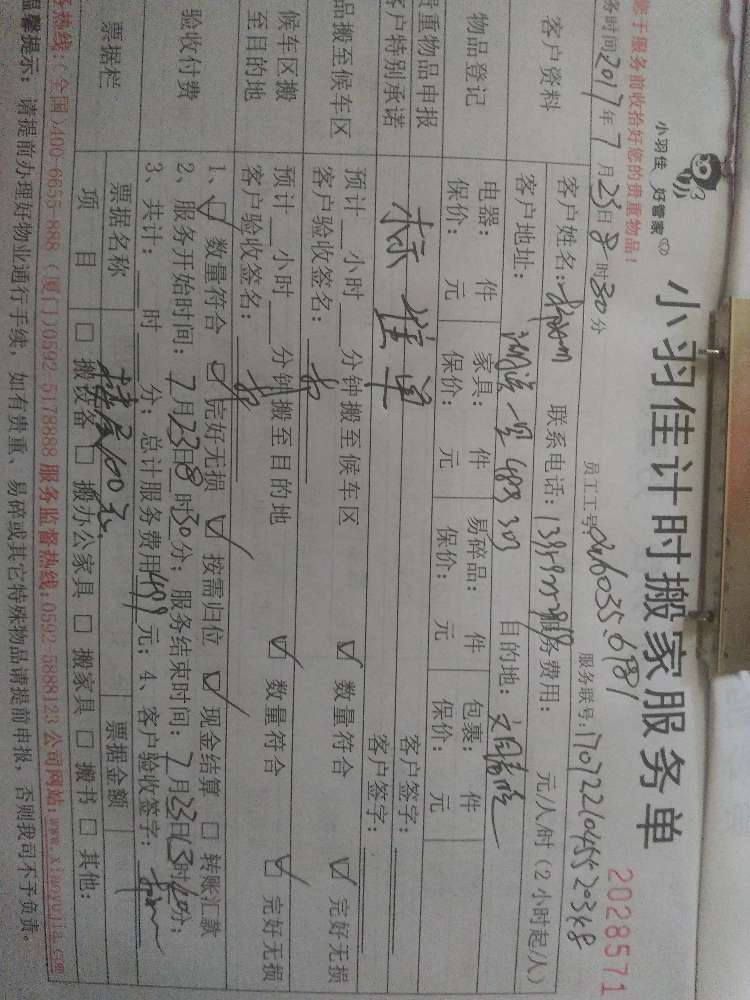 小羽佳 好管家
小羽佳计时搬家服务单
2028571
您于服务前收拾好您的贵重物品!
员工工号: 服务联号:
务时间2017年7月23日8时30分
客户资料
客户姓名: 联系电话: 服务费用: 元/人/时(2小时起/人)
客户地址: 目的地:
物品登记
电器: 件 家具: 件 易碎品: 件 包裹: 件
保价: 元 保价: 元 保价: 元 保价: 元
贵重物品申报 客户签字:
客户特别承诺 标准单 客户签字:
品搬至候车区
预计__小时__分钟搬至候车区 ☑ 数量符合 ☑ 完好无损
客户验收签名:
候车区搬至目的地
预计__小时__分钟搬至目的地 ☑ 数量符合 ☑ 完好无损
客户验收签名:
验收付费
1、☑ 数量符合 ☑ 完好无损 ☑ 按需归位 ☑ 现金结算 □ 转账汇款
2、服务开始时间:7月23日8时30分;服务结束时间:7月23日13时 分;
3、共计:__时__分;总计服务费用499元;4、客户验收签字:
票据栏
票据名称 100元 票据金额
项目 □ 搬设备 □ 搬办公家具 □ 搬家具 □ 搬书 □ 其他:
务热线:(全国)400-6655-888 (厦门)0592-5178888 服务监督热线:0592-5888123 公司网站:www.xiaoyujia.com
温馨提示:请提前办理好物业通行手续,如有贵重、易碎或其它特殊物品请提前申报,否则我司不予负责。